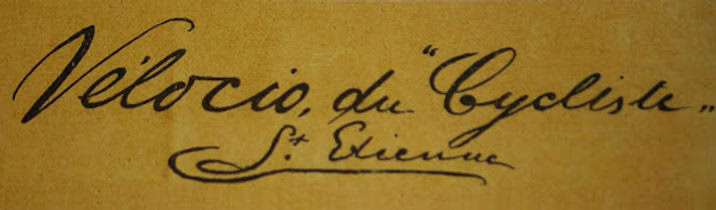 Vélocio, du "Cycliste"
St. Etienne